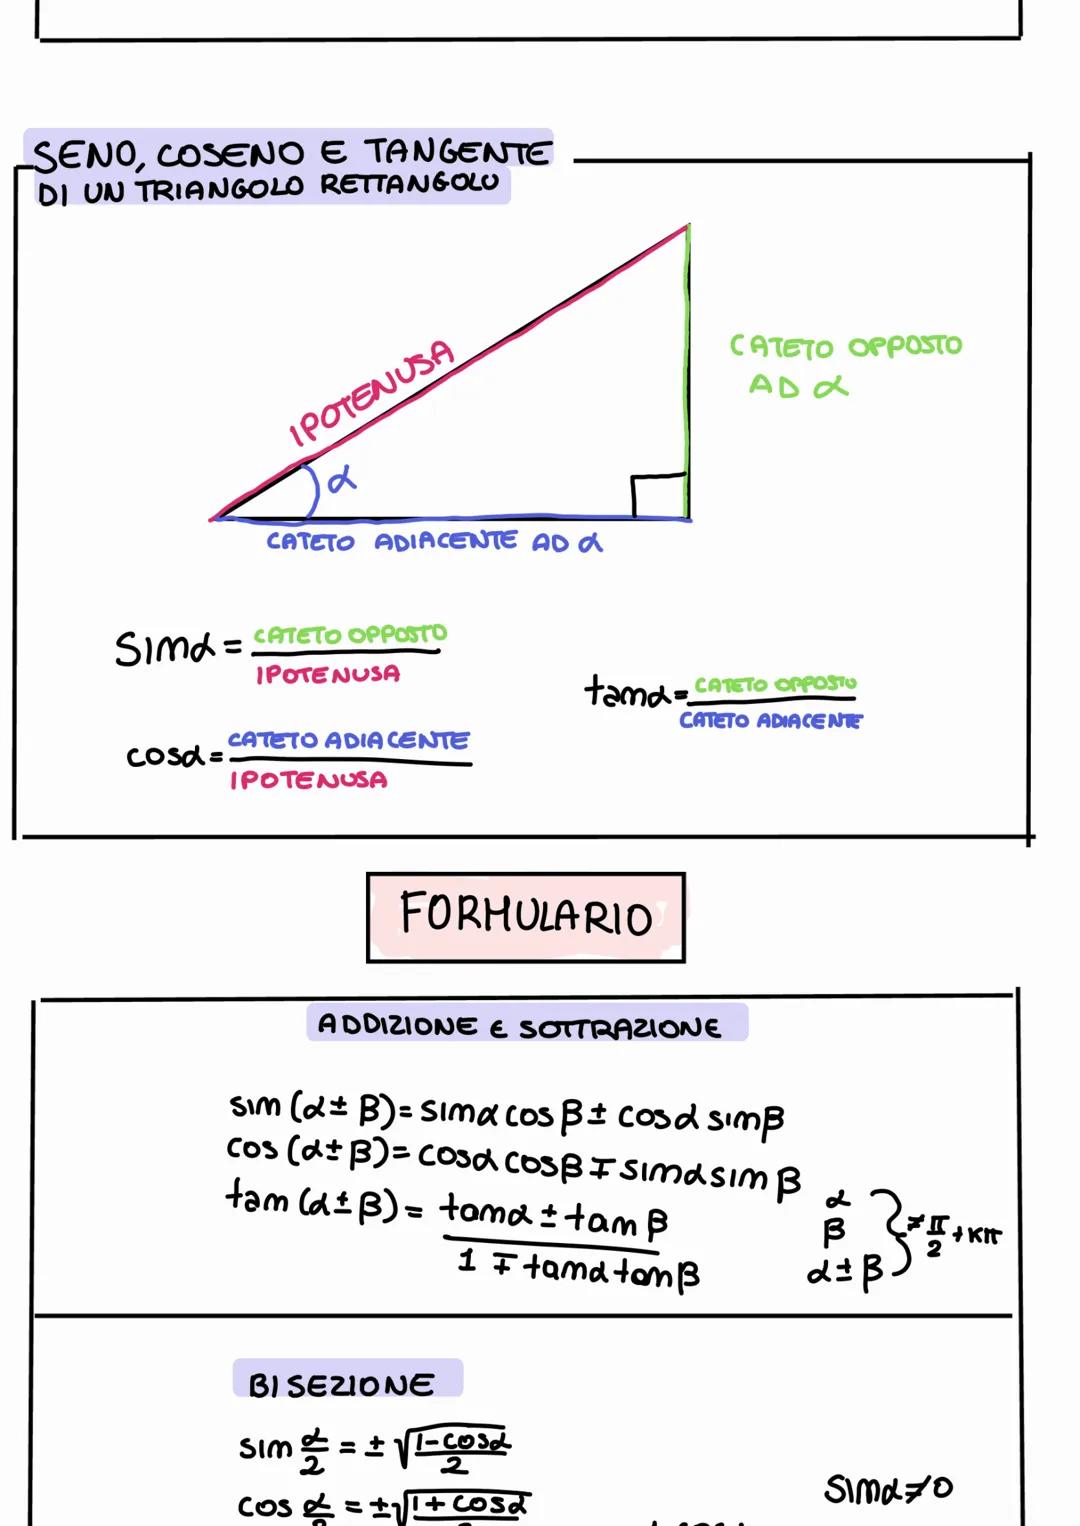 SENO, COSENO E TANGENTE
DI UN TRIANGOLO RETTANGOLO
IPOTENUSA
CATETO OPPOSTO
AD α
α
CATETO ADIACENTE AD α
sinα = CATETO OPPOSTO / IPOTENUSA
tanα = CATETO OPPOSTO / CATETO ADIACENTE
cosα = CATETO ADIACENTE / IPOTENUSA
FORMULARIO
ADDIZIONE E SOTTRAZIONE
sin (α ± β) = sinα cos β ± cosα sinβ
cos (α ± β) = cosα cosβ ∓ sinα sin β
tan (α ± β) = tanα ± tan β / 1 ∓ tanα tanβ
α
β
α ± β } ≠ π/2 + kπ
BISEZIONE
sin α/2 = ± √(1 - cosα / 2)
cos α/2 = ± √(1 + cosα / 2)
sinα ≠ 0